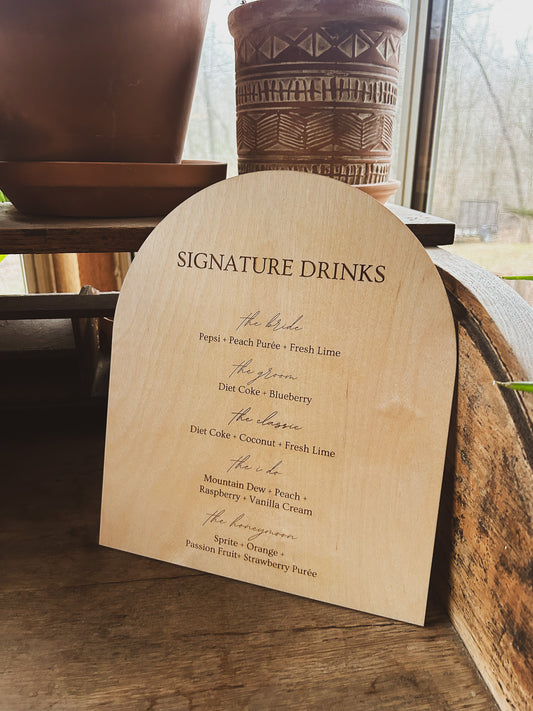 SIGNATURE DRINKS
the bride
Pepsi + Peach Purée + Fresh Lime
the groom
Diet Coke + Blueberry
the classic
Diet Coke + Coconut + Fresh Lime
the i do
Mountain Dew + Peach +
Raspberry + Vanilla Cream
the honeymoon
Sprite + Orange +
Passion Fruit+ Strawberry Purée